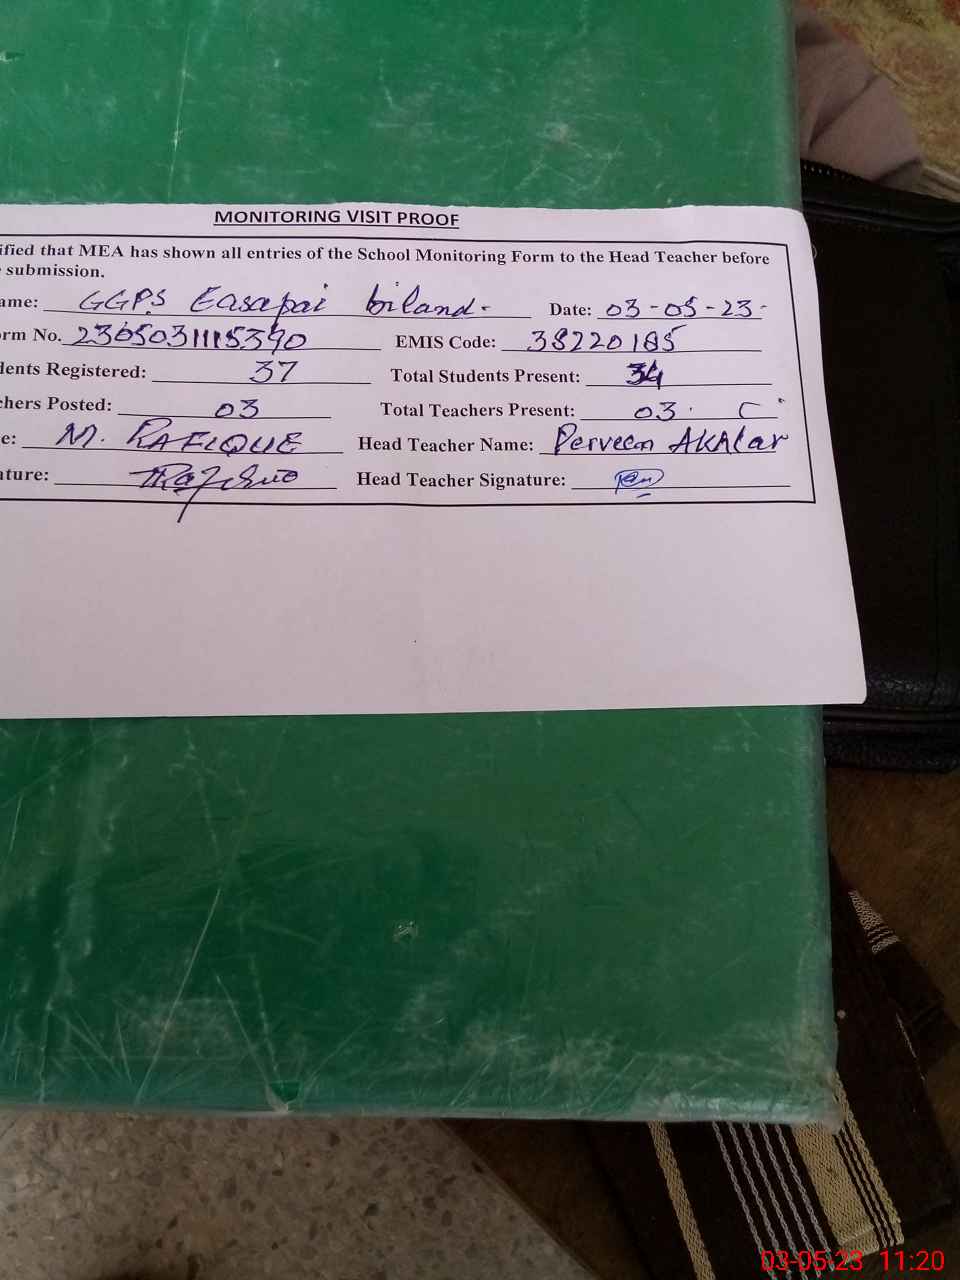 MONITORING VISIT PROOF
ified that MEA has shown all entries of the School Monitoring Form to the Head Teacher before
submission.
ame: GGPS Easapai biland. Date: 03-05-23
rm No. 2305031115390 EMIS Code: 38220185
dents Registered: 37 Total Students Present: 34
chers Posted: 03 Total Teachers Present: 03
e: M. RAFIQUE Head Teacher Name: Perveen AKhtar
ature: Head Teacher Signature:
03-05-23 11:20